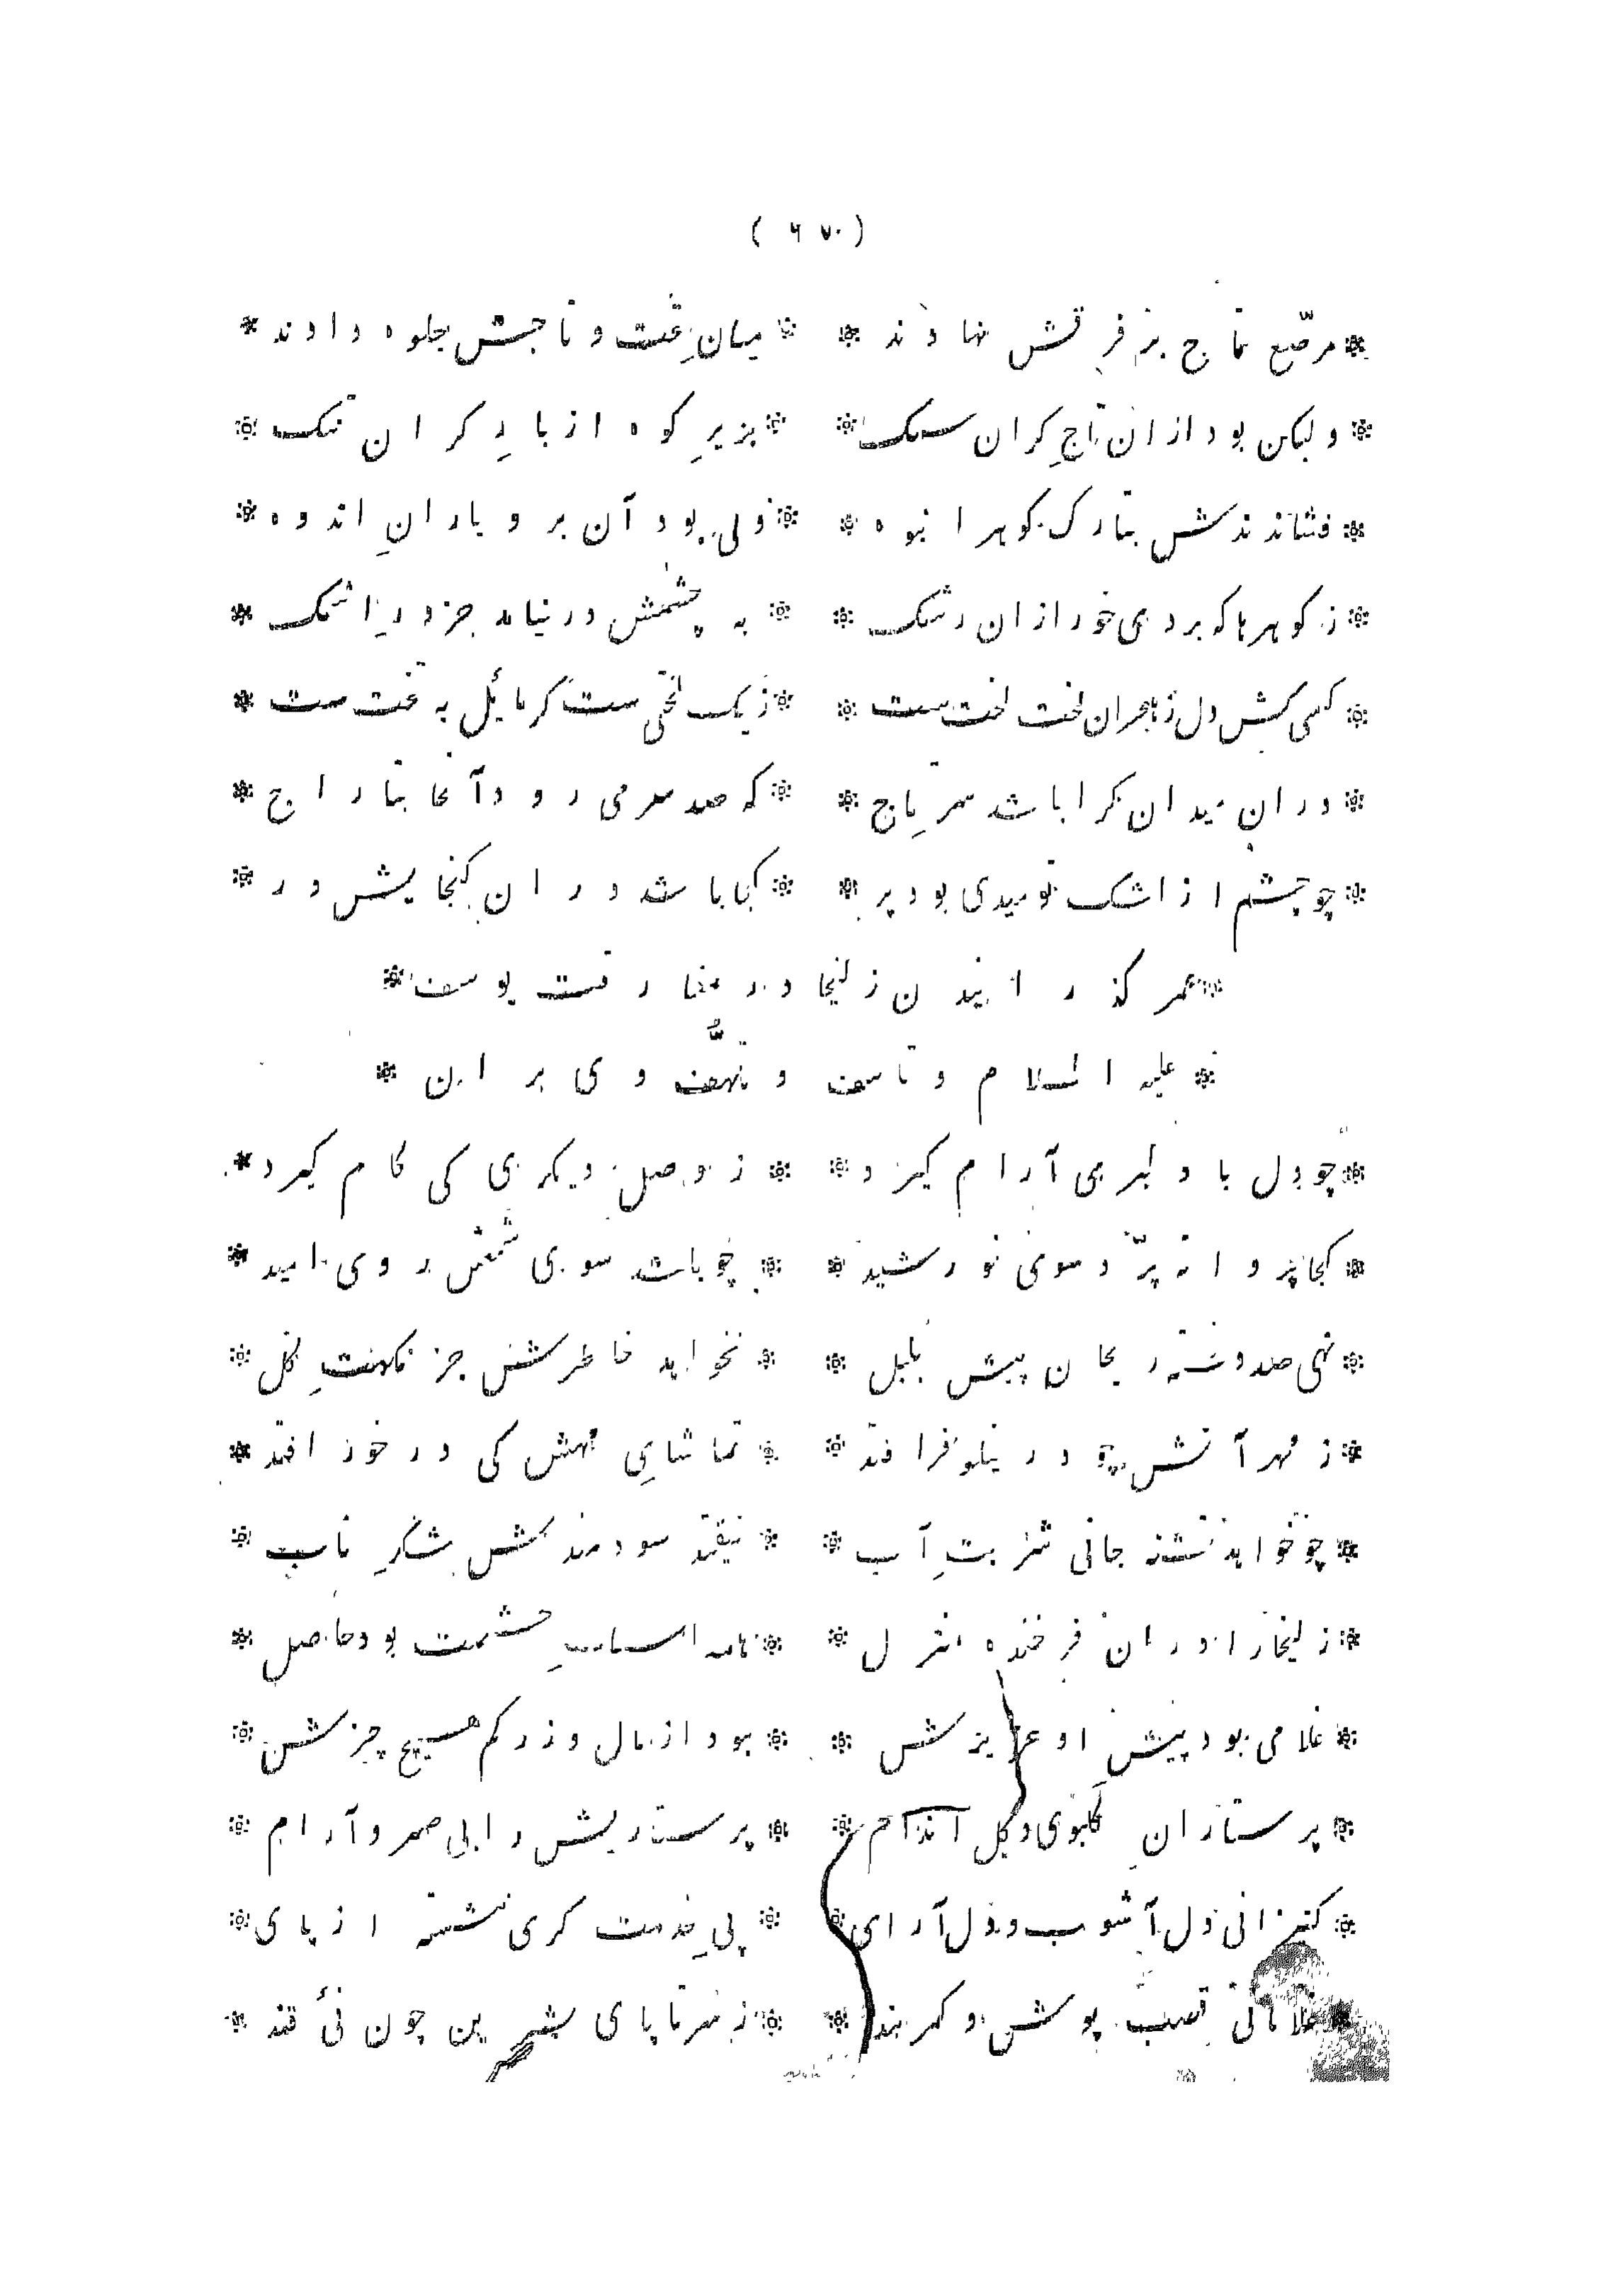 ( ۶۷۰ )
* مرصّع تاج بر فرقش نهادند * * میانِ تخت و تاجش جلوه دادند *
* ولیکن بود ازان تاجِ کران سنک * بزیرِ کوه از بارِ کران تنک *
* فشاندندش بتارک کوهر انبوه * ولی بود آن برو بارانِ اندوه *
* ز کوهرها که بردی خور ازان رشک * به چشمش در نیامد جز در اشک *
* کسی کش دل ز هجران لخت لخت ست * ز یک لختی ست کر مائل به تخت ست *
* در ان میدان کرا باشد سرِ تاج * که صد سر می رود آنجا بتاراج *
* چو چشم از اشک نومیدی بود پر * کجا باشد در ان کنجایش در *
* عمر کذرانیدن زلیخا در مفارقت یوسف *
* علیه السلام و تاسف و تلهُّف وی بر ان *
* چو دل با دلبری آرام کیرد * ز وصل دیکری کی کام کیرد *
* کجا پروانه پرّد سوی خورشید * چو باشد سوی شمعش روی امید *
* نهی صد دسته ریحان پیش بلبل * نخواهد خاطرش جز نکهتِ کل *
* ز مهر آتش چو در نیلوفر افتد * تماشایِ مهش کی در خور افتد *
* چو خواهد تشنه جانی شربتِ آب * نیفتد سودمندش شکرِ ناب *
* زلیخا را در ان فرخنده منزل * همه اسبابِ حشمت بود حاصل *
* غلامی بود پیش او عزیزش * نبود از مال و زر کم هیچ چیزش *
* پرستارانِ کلبوی و کل اندام * پرستاریش را بی صبر و آرام *
* کنیزانی دل آشوب و دل آرای * پیِ خدمت کری ننشسته از پای *
* غلامانی قصب پوش و کمر بند * ز سر تا پای شیرین چون نئ قند *